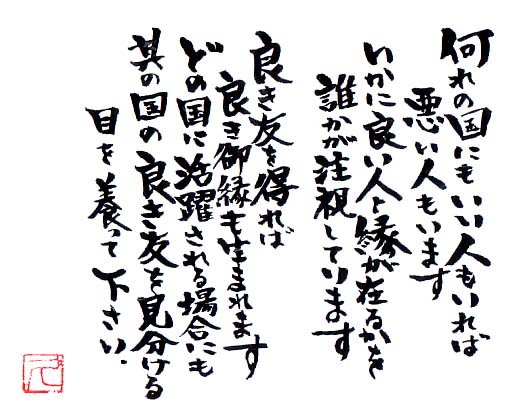 何れの国にもいい人もいれば
悪い人もいます
いかに良い人と縁が在るかを
誰かが注視しています
良き友を得れば
良き御縁も生まれます
どの国に活躍される場合にも
其の国の良き友を見分ける
目を養って下さい.